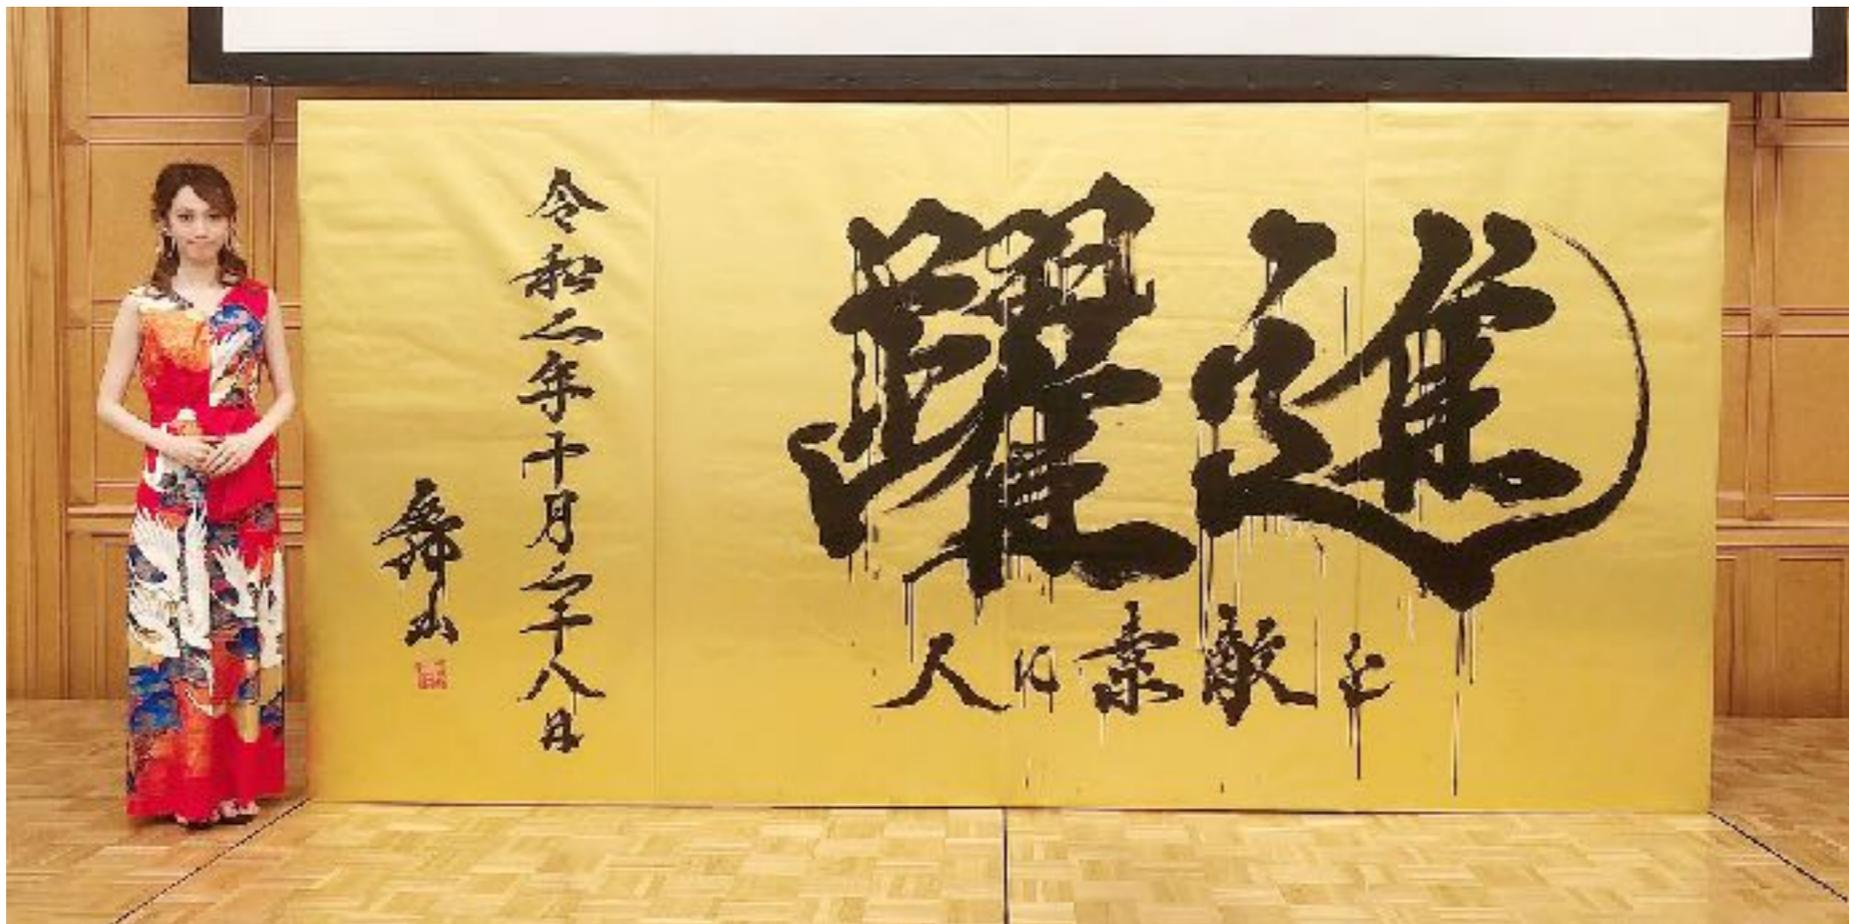 躍進
人に素敵を
令和二年十月二十八日
山